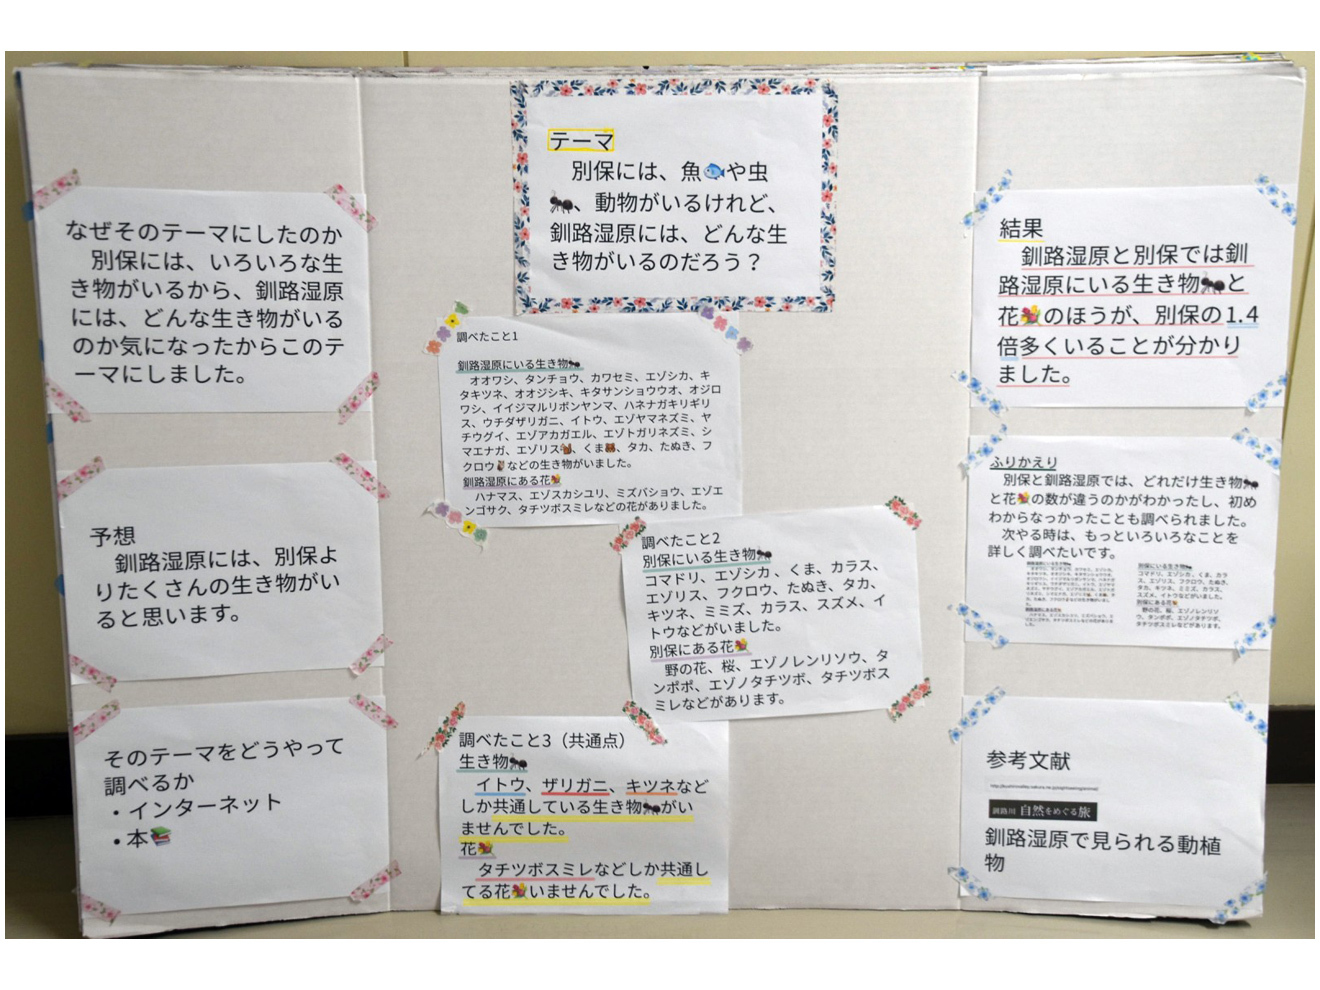 テーマ
別保には、魚🐟や虫
🐜、動物がいるけれど、
釧路湿原には、どんな生
き物がいるのだろう？
なぜそのテーマにしたのか
別保には、いろいろな生
き物がいるから、釧路湿原
には、どんな生き物がいる
のか気になったからこのテ
ーマにしました。
予想
釧路湿原には、別保よ
りたくさんの生き物がい
ると思います。
そのテーマをどうやって
調べるか
・インターネット
・本📚
調べたこと1
釧路湿原にいる生き物🐜
オオワシ、タンチョウ、カワセミ、エゾシカ、キ
タキツネ、オオジシキ、キタサンショウウオ、オジロ
ワシ、イイジマルリボンヤンマ、ハネナガキリギリ
ス、ウチダザリガニ、イトウ、エゾヤマネズミ、ヤ
チウグイ、エゾアカガエル、エゾトガリネズミ、シ
マエナガ、エゾリス🐿、くま🐻、タカ、たぬき、フ
クロウ🦉などの生き物がいました。
釧路湿原にある花💐
ハナマス、エゾスカシユリ、ミズバショウ、エゾエ
ンゴサク、タチツボスミレなどの花がありました。
調べたこと2
別保にいる生き物🐜
コマドリ、エゾシカ、くま、カラス、
エゾリス、フクロウ、たぬき、タカ、
キツネ、ミミズ、カラス、スズメ、イ
トウなどがいました。
別保にある花💐
野の花、桜、エゾノレンリソウ、タ
ンポポ、エゾノタチツボ、タチツボス
ミレなどがあります。
調べたこと3（共通点）
生き物🐜
イトウ、ザリガニ、キツネなど
しか共通している生き物🐜がい
ませんでした。
花💐
タチツボスミレなどしか共通し
てる花💐いませんでした。
結果
釧路湿原と別保では釧
路湿原にいる生き物🐜と
花💐のほうが、別保の1.4
倍多くいることが分かり
ました。
ふりかえり
別保と釧路湿原では、どれだけ生き物🐜
と花💐の数が違うのかがわかったし、初め
わからなっかったことも調べられました。
次やる時は、もっといろいろなことを
詳しく調べたいです。
別保にいる生き物🐜
コマドリ、エゾシカ、くま、カラ
ス、エゾリス、フクロウ、たぬき、
タカ、キツネ、ミミズ、カラス、
スズメ、イトウなどがいました。
別保にある花💐
野の花、桜、エゾノレンリソ
ウ、タンポポ、エゾノタチツボ、
タチツボスミレなどがあります。
参考文献
釧路川 自然をめぐる旅
釧路湿原で見られる動植
物